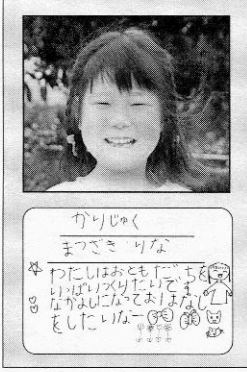 かりじゅく
まつざき りな
わたしはおともだちを
いっぱいつくりたいです
なかよしになっておはなし
をしたいなー